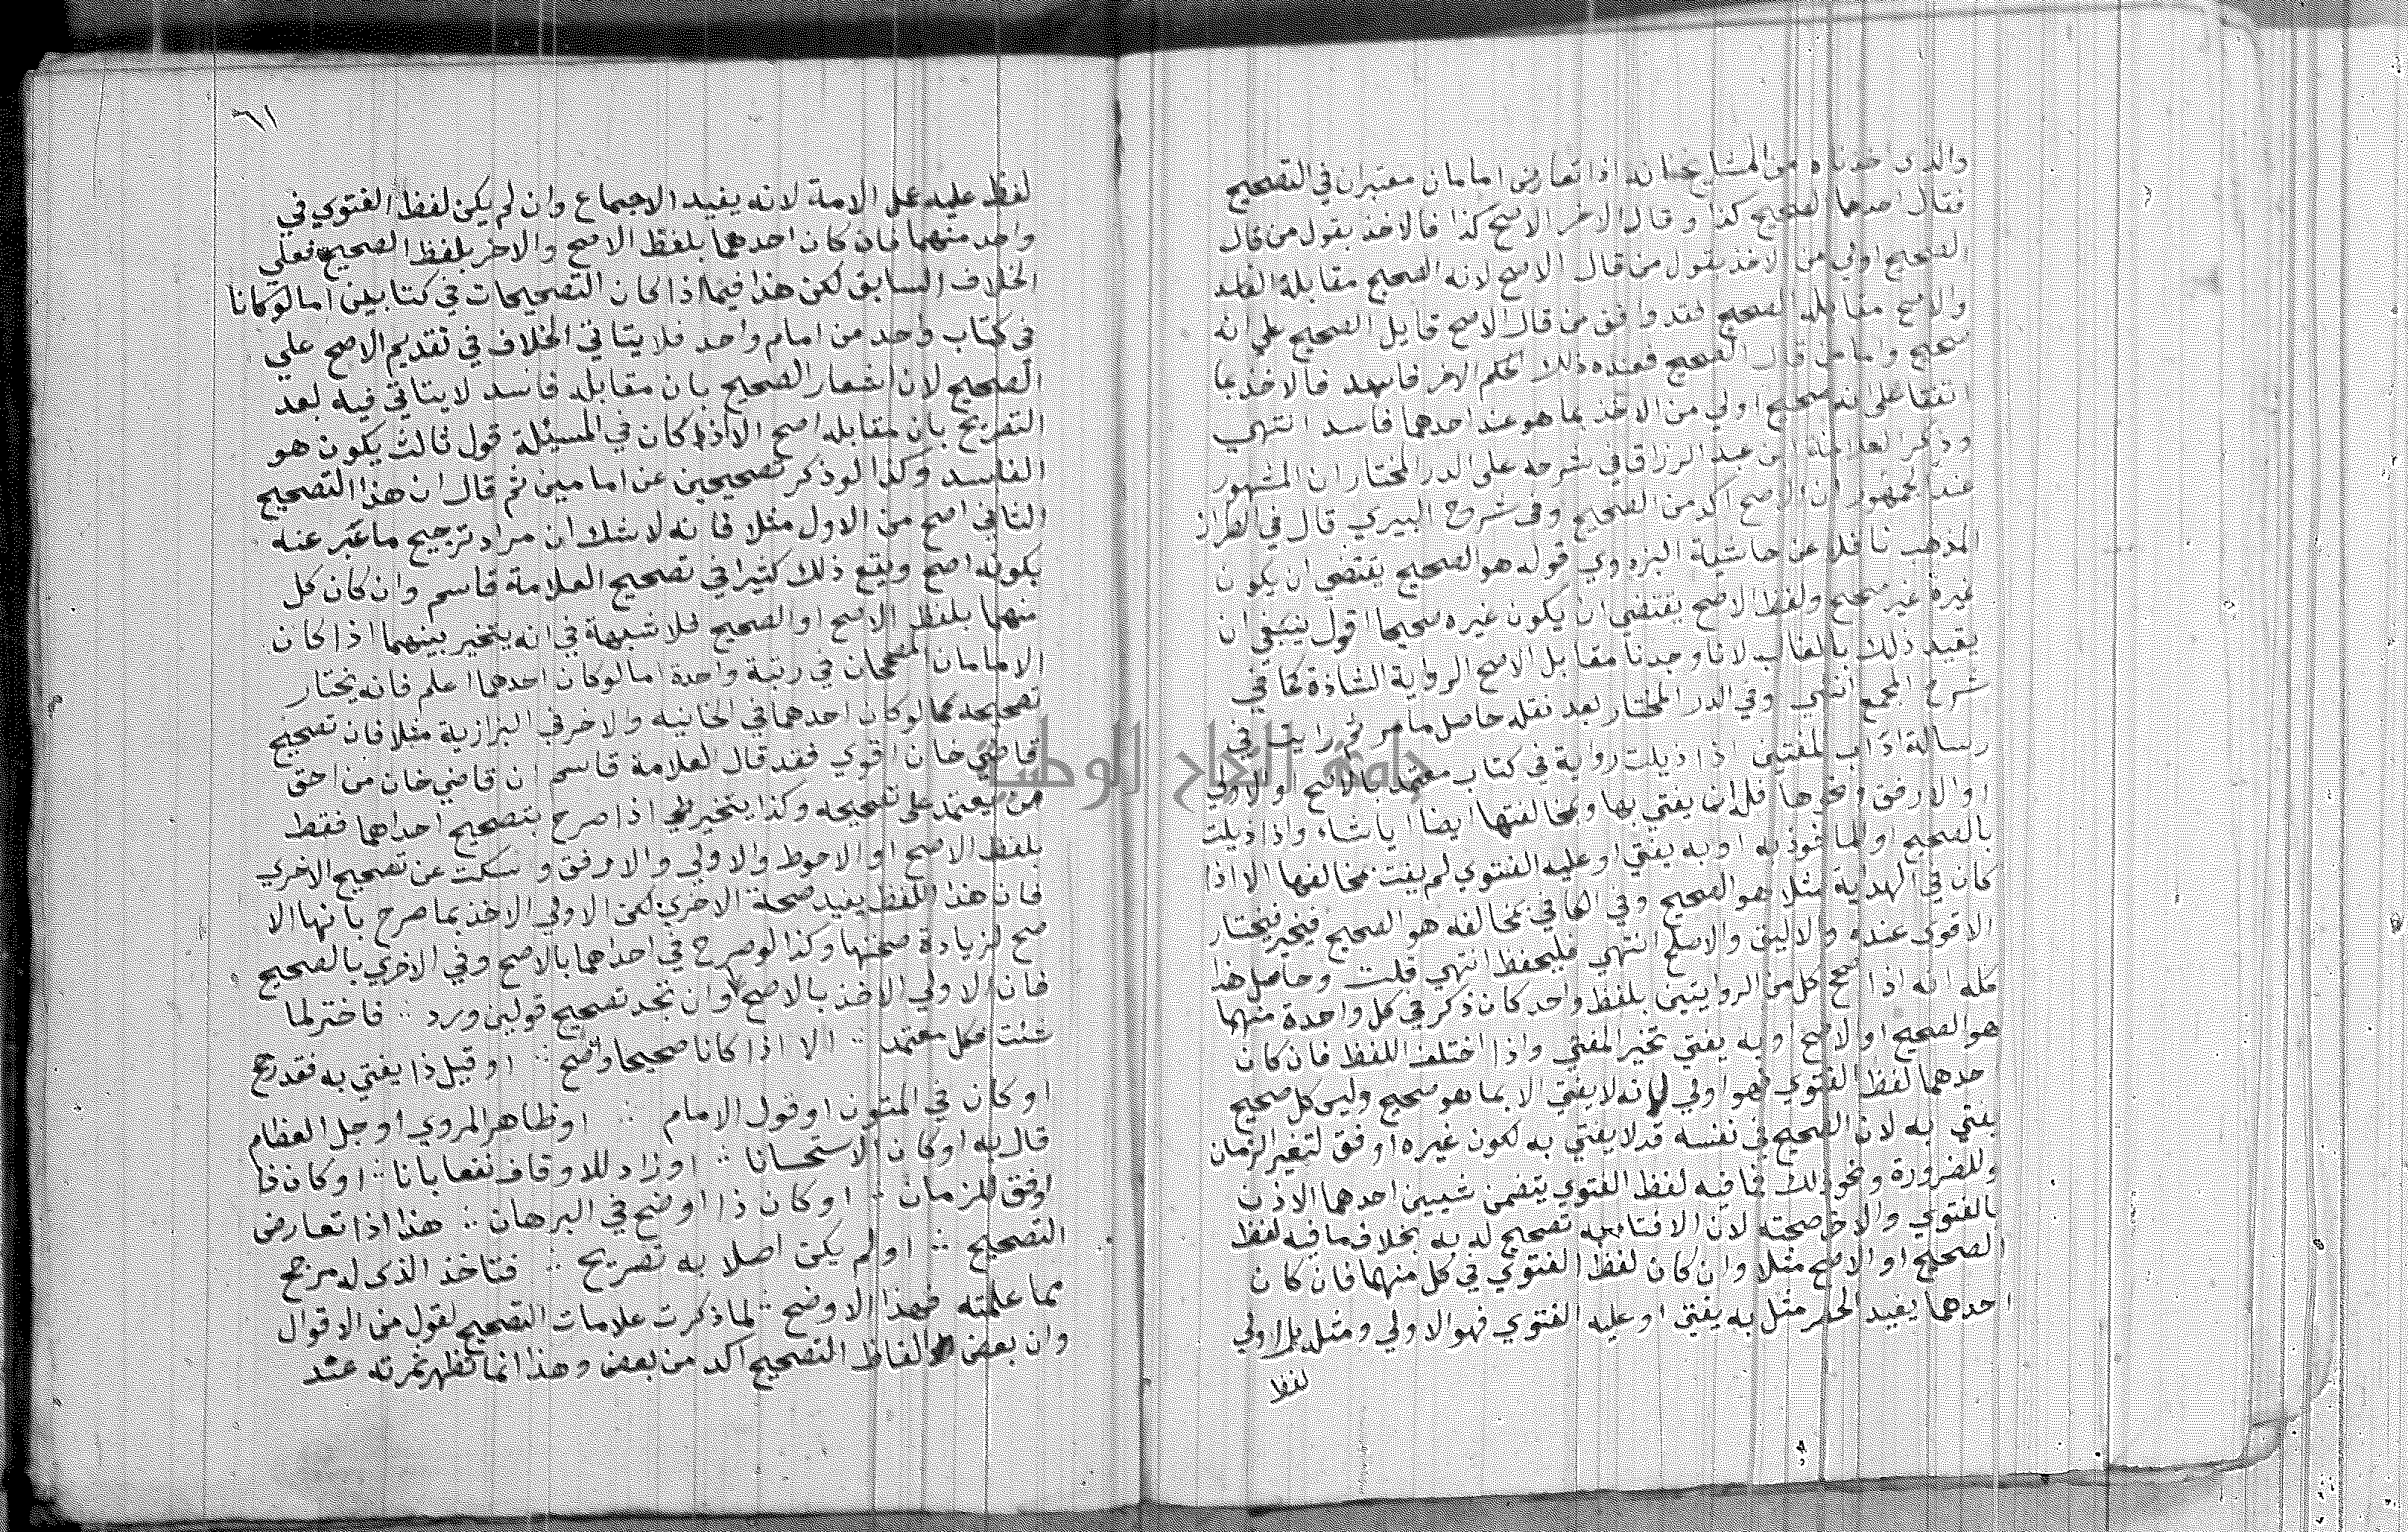 والذي اخذناه من المشايخ انه اذا تعارض امامان معتبران في التصحيح
فقال احدهما الصحيح كذا وقال الاخر الاصح كذا فالاخذ بقول من قال
الصحيح اولي من الاخذ بقول من قال الاصح لانه الصحيح مقابلة الفاسد
والاصح مقابله الصحيح فقد وافق من قال الاصح قايل الصحيح علي انه
صحيح واما من قال الصحيح فعنده ذلك الحكم الاخر فاسد فالاخذ بما
اتفقا على انه صحيح اولي من الاخذ بما هو عند احدهما فاسد انتهي
وذكر العلامة ابن عبد الرزاق في شرحه على الدر المختار ان المشهور
عند الجمهور ان الاصح اكد من الصحيح وفي شرح البيري قال في الطراز
المذهب ناقلا عن حاشية البزدوي قوله هو الصحيح يقتضي ان يكون
غيره غير صحيح ولفظ الاصح يقتضي ان يكون غيره صحيحا اقول ينبغي ان
يقيد ذلك بالغالب لانا وجدنا مقابل الاصح الرواية الشاذة كما في
شرح المجمع انتهي وفي الدر المختار بعد نقله حاصل ما مر ثم رايت في
رسالة اداب المفتين اذا ذيلت رواية في كتاب معتمد بالاصح او الاولي
او الارفق ونحوها فله ان يفتي بها وبمخالفتها ايضا ايا شاء واذا ذيلت
بالصحيح او الماخوذ به او به يفتي او عليه الفتوي لم يفت بمخالفها الا اذا
كان في الهداية مثلا هو الصحيح وفي الكافي بمخالفه هو الصحيح فيخير فيختار
الاقوى عنده والاليق والاصلح انتهي فليحفظ انتهي قلت وحاصل هذا
كله انه اذا صحح كل من الروايتين بلفظ واحد كان ذكر في كل واحدة منهما
هو الصحيح او الاصح او به يفتي تخير المفتي واذا اختلف اللفظ فان كان
احدهما لفظ الفتوي فهو اولي لانه لا يفتي الا بما هو صحيح وليس كل صحيح
يفتي به لان الصحيح في نفسه قد لا يفتي به لكون غيره اوفق لتغير الزمان
وللضرورة ونحو ذلك فما فيه لفظ الفتوي يتضمن شيين احدهما الاذن
بالفتوي والاخر صحته لان الافتاء به تصحيح له به بخلاف ما فيه لفظ
الصحيح او الاصح مثلا وان كان لفظ الفتوي في كل منهما فان كان
احدهما يفيد الحصر مثل به يفتي او عليه الفتوي فهو الاولي ومثله بل اولي
لفظ
٦١
لفظ عليه عمل الامة لانه يفيد الاجماع وان لم يكن لفظ الفتوي في
واحد منهما فان كان احدهما بلفظ الاصح والاخر بلفظ الصحيح فعلي
الخلاف السابق لكن هذا فيما اذا كان التصحيحات في كتابين اما لو كانا
في كتاب واحد من امام واحد فلا يتاتي الخلاف في تقديم الاصح علي
الصحيح لان اشعار الصحيح بان مقابله فاسد لا يتاتي فيه بعد
التصريح بان مقابله اصح الا اذا كان في المسئلة قول ثالث يكون هو
الفاسد وكذا لو ذكر تصحيحين عن امامين ثم قال ان هذا التصحيح
الثاني اصح من الاول مثلا فانه لا شك ان مراده ترجيح ما عبر عنه
بكونه اصح ويقع ذلك كثيرا في تصحيح العلامة قاسم وان كان كل
منهما بلفظ الاصح او الصحيح فلا شبهة في انه يتخير بينهما اذا كان
الامامان المصححان في رتبة واحدة اما لو كان احدهما اعلم فانه يختار
تصحيحه كما لو كان احدهما في الخانيه والاخر في البزازية مثلا فان تصحيح
قاضي خان اقوي فقد قال العلامة قاسم ان قاضي خان من احق
من يعتمد على تصحيحه وكذا يتخير اذا صرح بتصحيح احداهما فقط
بلفظ الاصح او الاحوط والاولي والارفق وسكت عن تصحيح الاخري
فان هذا اللفظ يفيد صحة الاخري لكن الاولي الاخذ بما صرح بانها الا
صح لزيادة صحتها وكذا لو صرح في احداهما بالاصح وفي الاخري بالصحيح
فان الاولي الاخذ بالاصح وان تجد تصحيح قولين ورد ∴ فاختر لما
شئت فكل معتمد ∴ الا اذا كانا صحيحا واصح ∴ او قيل ذا يفتي به فقد رجح
او كان في المتون او قول الامام ∴ او ظاهر المروي او جل العظام
قال به او كان الاستحسانا ∴ او زاد للاوقاف نفعا بانا ∴ او كان ذا
اوفق للزمان ∴ او كان ذا اوضح في البرهان ∴ هذا اذا تعارض
التصحيح ∴ او لم يكن اصلا به تصريح ∴ فتاخذ الذي له مرجح
مما علمته فهذا الاوضح ∴ لما ذكرت علامات التصحيح لقول من الاقوال
وان بعض الفاظ التصحيح اكد من بعض وهذا انما تظهر ثمرته عند
جامعة النجاح الوطنية